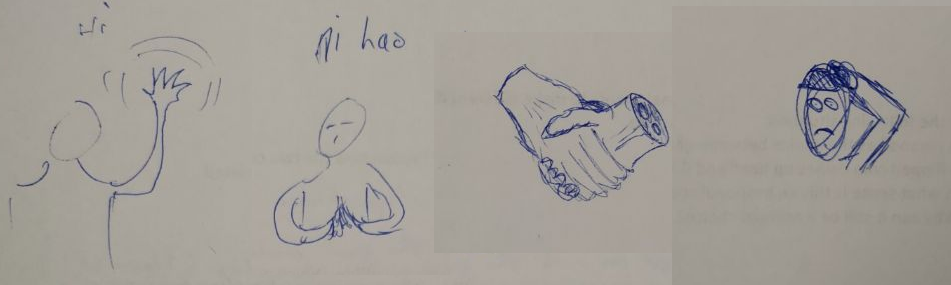 Hi
Ni hao